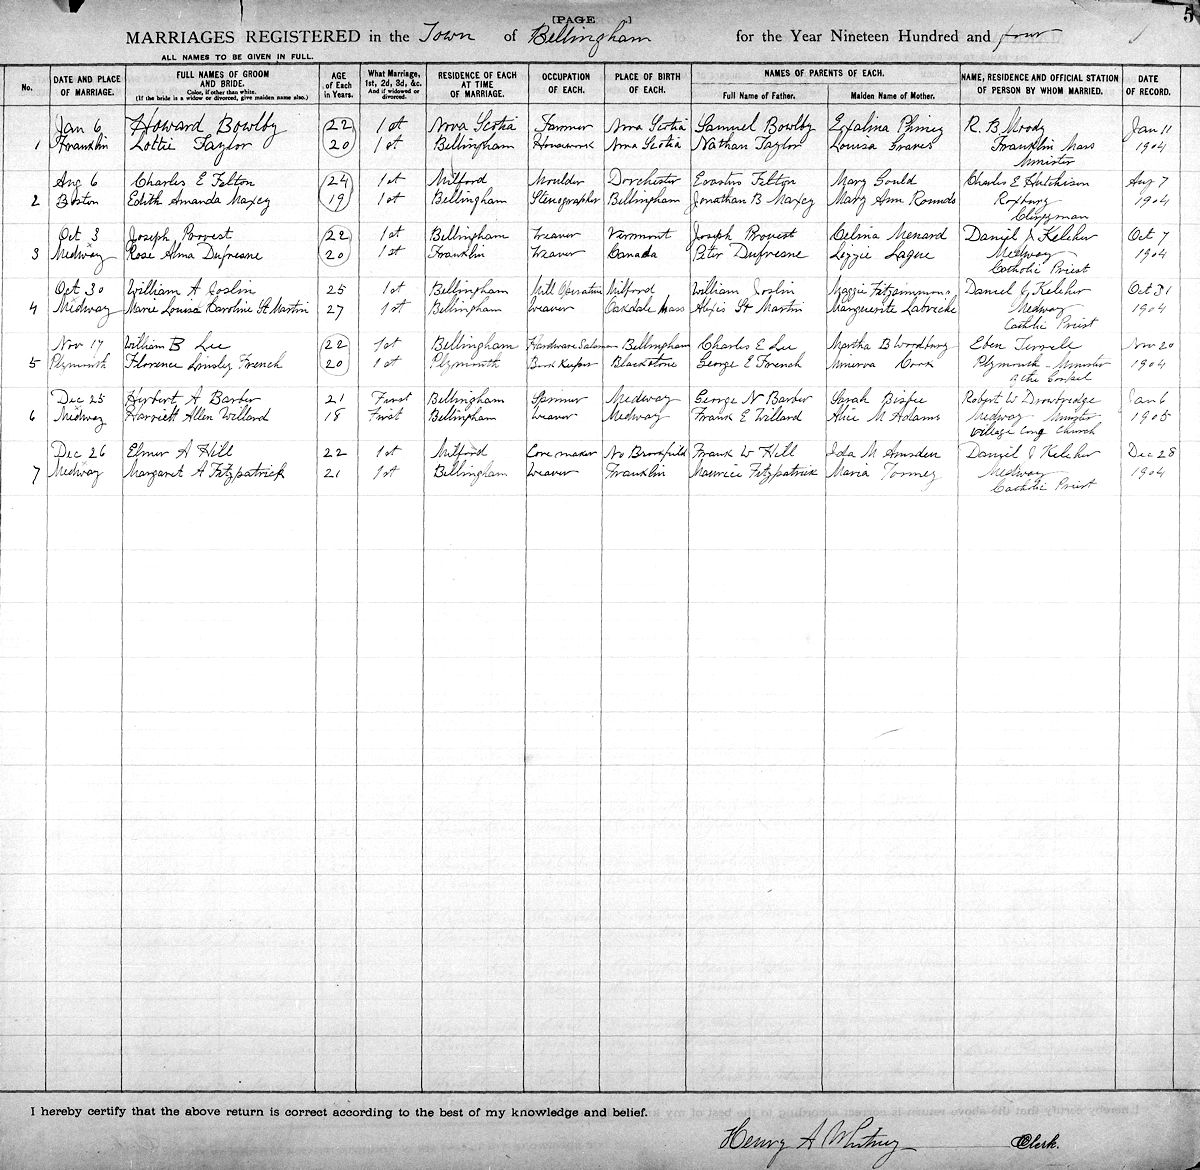 5
[PAGE ]
MARRIAGES REGISTERED in the Town of Bellingham for the Year Nineteen Hundred and four
ALL NAMES TO BE GIVEN IN FULL.
No. DATE AND PLACE OF MARRIAGE. FULL NAMES OF GROOM AND BRIDE. Color, if other than white. (If the bride is a widow or divorced, give maiden name also.) AGE of Each in Years. What Marriage, 1st, 2d, 3d, &c. And if widowed or divorced. RESIDENCE OF EACH AT TIME OF MARRIAGE. OCCUPATION OF EACH. PLACE OF BIRTH OF EACH. NAMES OF PARENTS OF EACH. Full Name of Father. Maiden Name of Mother. NAME, RESIDENCE AND OFFICIAL STATION OF PERSON BY WHOM MARRIED. DATE OF RECORD.
Jan 6 Howard Bowlby 22 1st Nova Scotia Farmer Nova Scotia Samuel Bowlby Phiney R. B. Moody Jan 11
1 Franklin Lottie Taylor 20 1st Bellingham Housework Nova Scotia Nathan Taylor Louisa Graves Franklin Mass 1904
Minister
Aug 6 Charles E Felton 24 1st Milford Moulder Dorchester Erastus Felton Mary Gould Charles E Hutchison Aug 7
2 Boston Edith Amanda Maxcy 19 1st Bellingham Stenographer Bellingham Jonathan B Maxcy Mary Ann Rounds Roxbury 1904
Clergyman
Oct 3 Joseph Provest 22 1st Bellingham Weaver Vermont Joseph Provest Celina Menard Daniel J Keleher Oct 7
3 Medway Rose Alma Dufresne 20 1st Franklin Weaver Canada Peter Dufresne Lizzie Lague Medway 1904
Catholic Priest
Oct 30 William A Joslin 25 1st Bellingham Mill Operative Milford William Joslin Maggie Fitzsimmons Daniel J Keleher Oct 31
4 Medway Marie Louisa Karoline St Martin 27 1st Bellingham Weaver Oakdale Mass Alexis St Martin Marguerite Labriche Medway 1904
Catholic Priest
Nov 17 William B Lee 22 1st Bellingham Hardware Salesman Bellingham Charles E Lee Martha B Woodbury Eben Tirrell Nov 20
5 Plymouth Florence Linsley French 20 1st Plymouth Book Keeper Blackstone George E French Minerva Cook Plymouth - Minister 1904
of the Gospel
Dec 25 Herbert A Barber 21 First Bellingham Spinner Medway George N Barber Sarah Bisfie Robert W Drawbridge Jan 6
6 Medway Harriett Allen Willard 18 First Bellingham Weaver Medway Frank E Willard Alice M Adams Medway Minister 1905
Village Cong Church
Dec 26 Elmer A Hill 22 1st Milford Core maker No Brookfield Frank W Hill Ida M Amsden Daniel J Keleher Dec 28
7 Medway Margaret A Fitzpatrick 21 1st Bellingham Weaver Franklin Maurice Fitzpatrick Maria Tormey Medway 1904
Catholic Priest
I hereby certify that the above return is correct according to the best of my knowledge and belief.
Henry A Whitney Clerk.